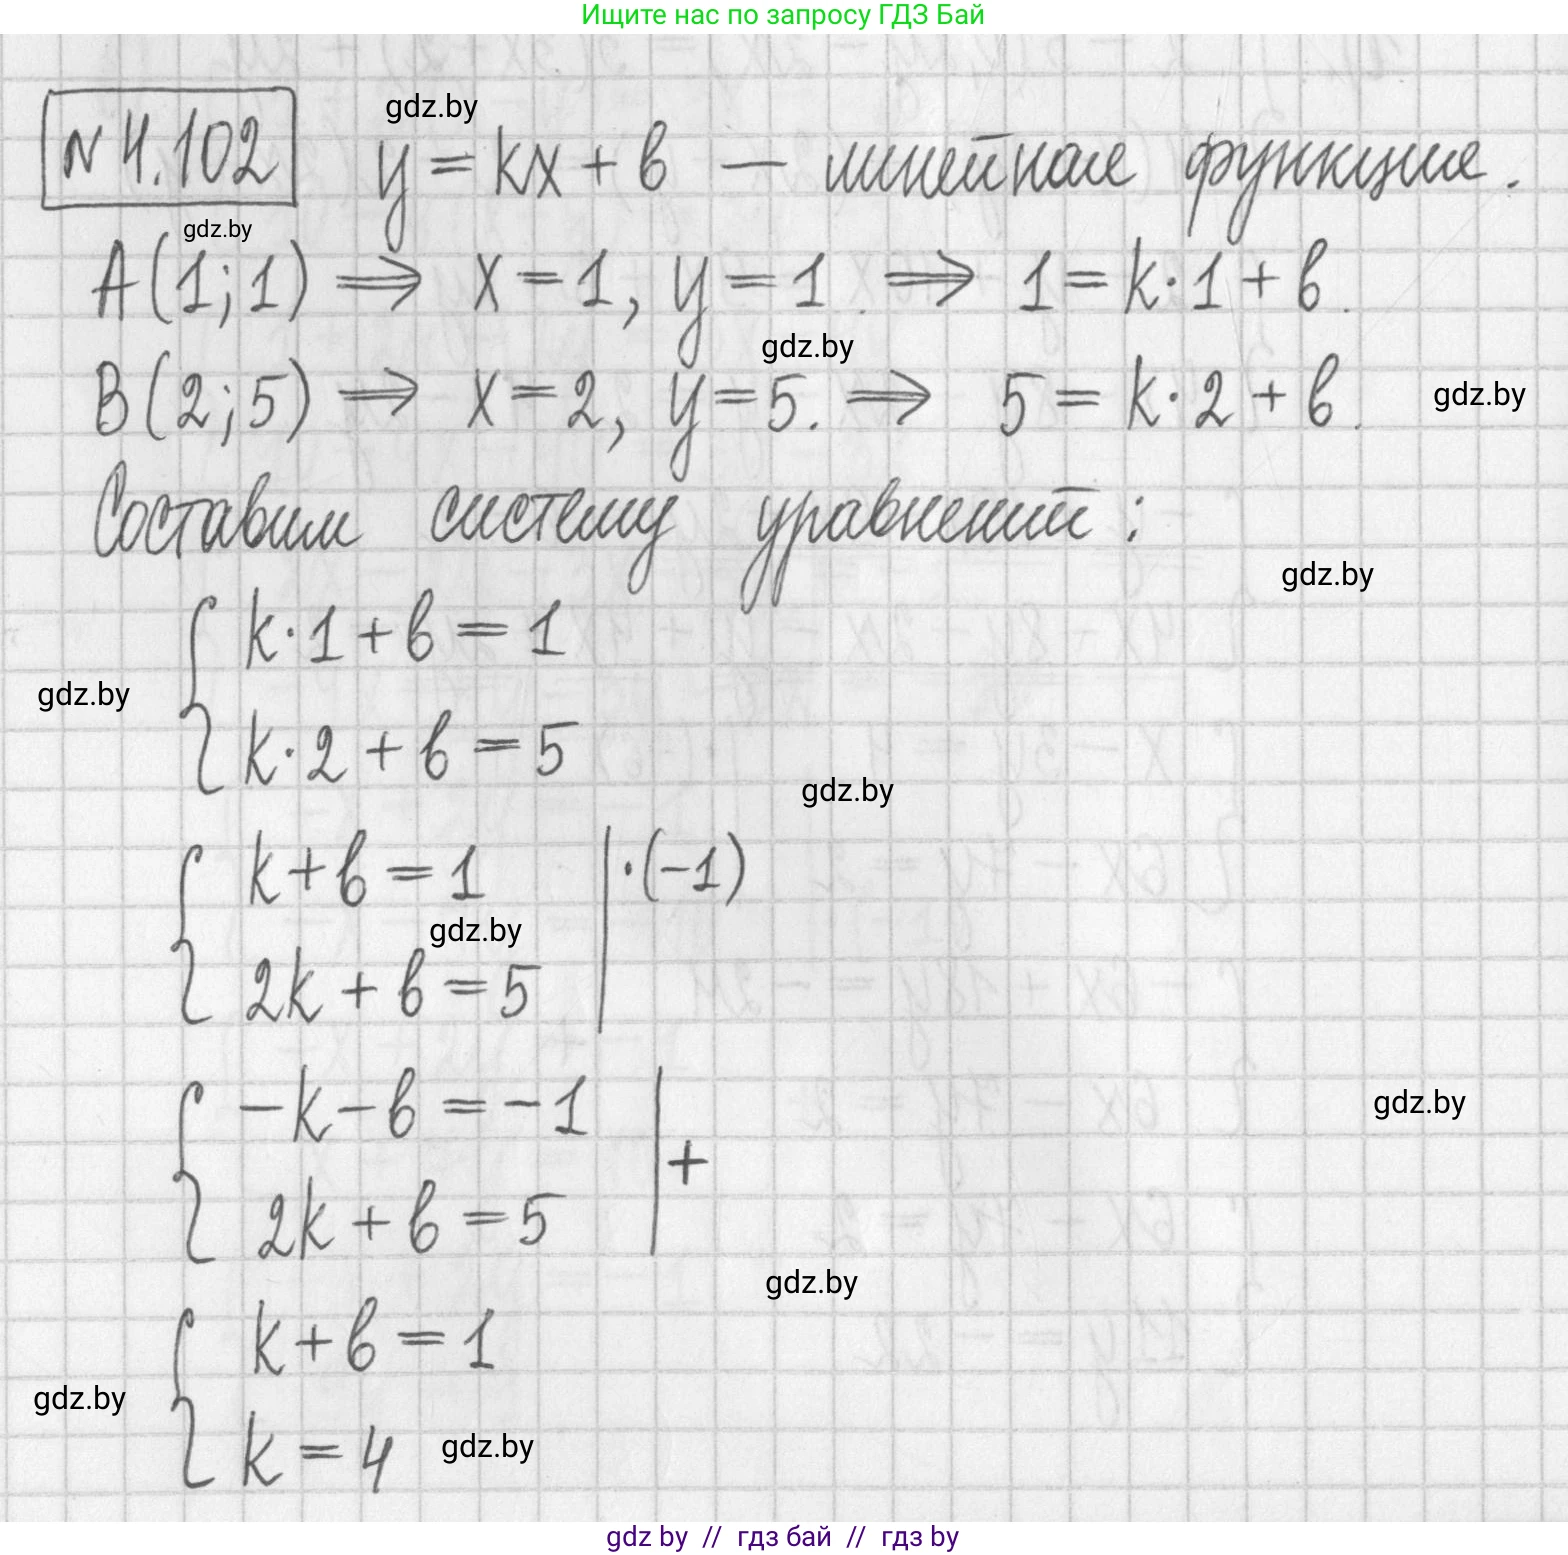 Ищите нас по запросу ГДЗ Бай
gdz.by
№ 4.102 y = kx + b — линейная функция.
gdz.by
A(1;1) ⟹ x = 1, y = 1. ⟹ 1 = k·1 + b.
gdz.by
B(2;5) ⟹ x = 2, y = 5. ⟹ 5 = k·2 + b.
gdz.by
Составим систему уравнений:
gdz.by
k·1 + b = 1
gdz.by
k·2 + b = 5
gdz.by
k + b = 1 | ·(-1)
gdz.by
2k + b = 5
-k - b = -1
gdz.by
+
2k + b = 5
gdz.by
k + b = 1
gdz.by
k = 4
gdz.by
gdz by // гдз бай // гдз by